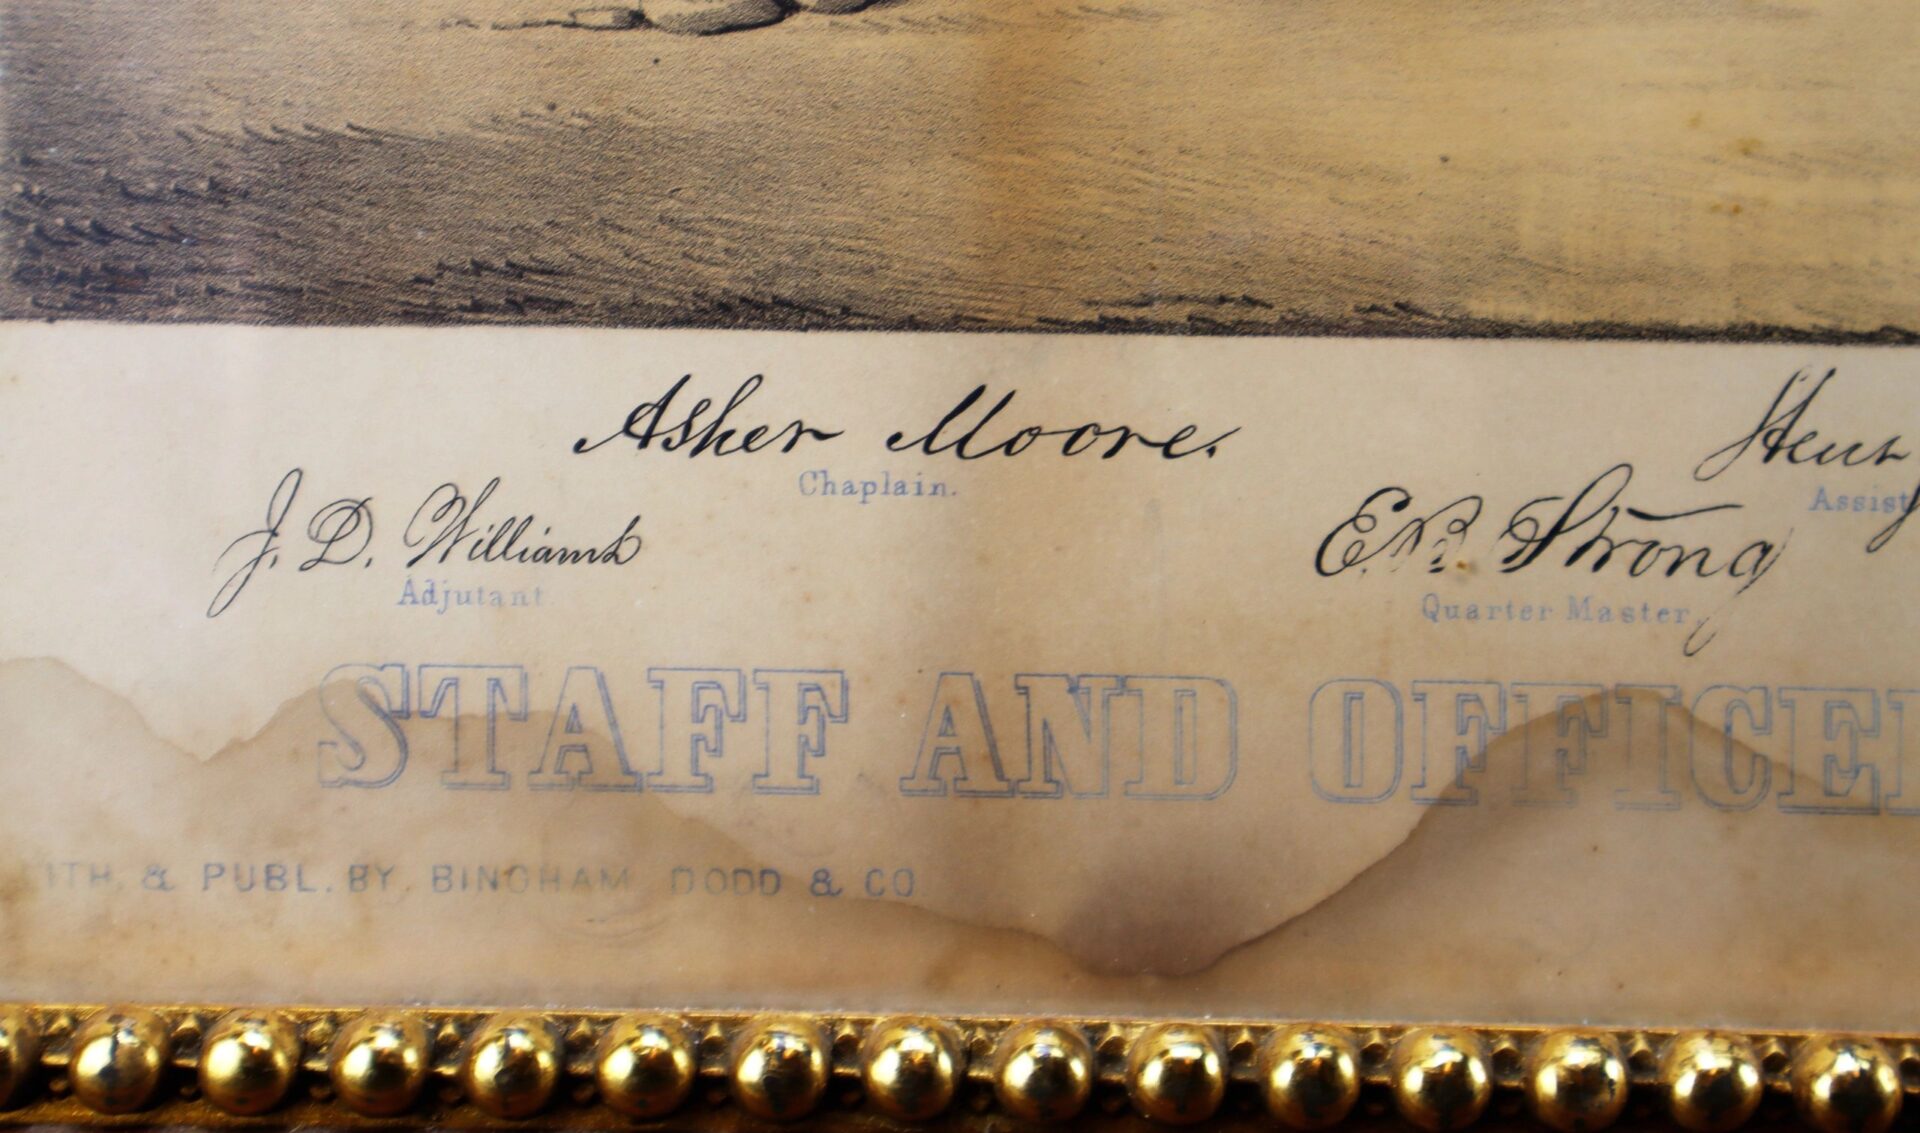 Asher Moore.
Chaplain.
J. D. Williams
Adjutant
E. B. Strong
Quarter Master,
STAFF AND
& PUBL. BY BINGHAM DODD & CO